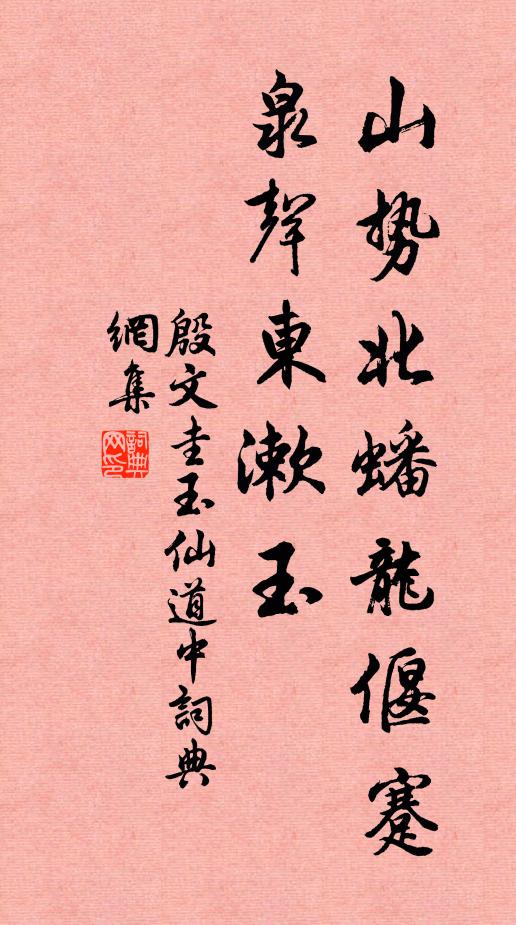 山势北蟠龍偃蹇
泉聲東漱玉
殷文圭玉仙道中詞典
網集
詞典
网印